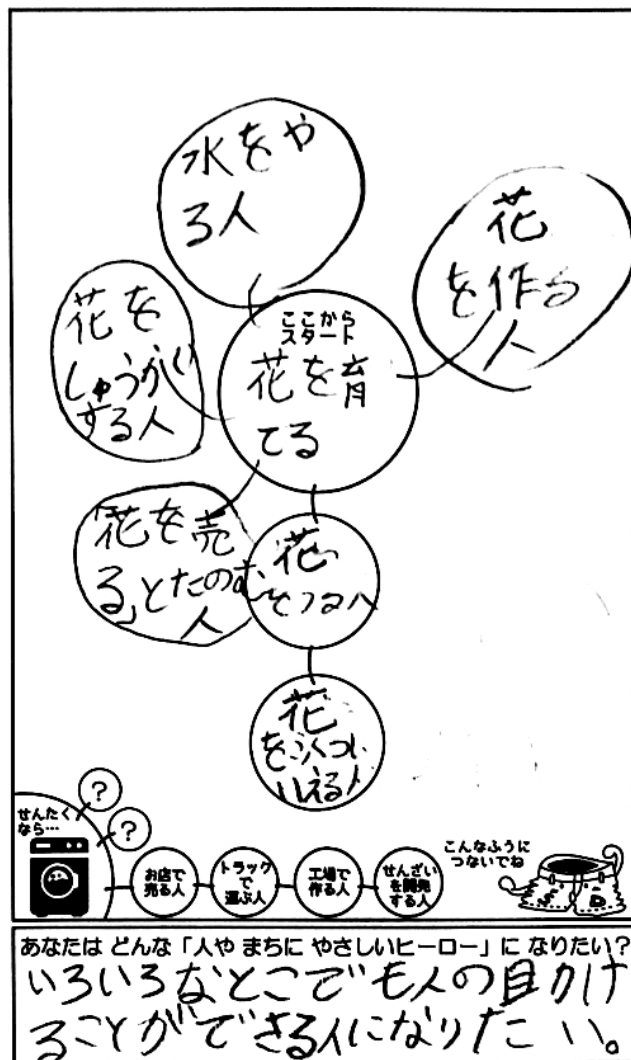 水をや
る人
花
を作る
人
花を
しゅうかい
する人
ここから
スタート
花を育
てる
「花を売
る」とたのむ
人
花
花
せんたく
なら…
?
?
お店で
売る人
トラック
で
運ぶ人
工場で
作る人
せんざい
を開発
する人
こんなふうに
つないでね
あなたは どんな「人や まちに やさしいヒーロー」に なりたい?
いろいろなとこでも人の目かけ
ることができる人になりたい。